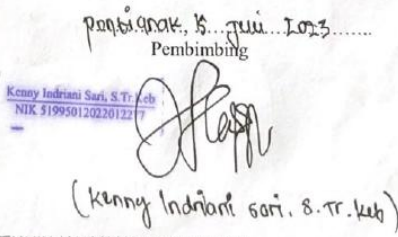 Pontianak, 15 Juni 2023
Pembimbing
Kenny Indriani Sari, S.Tr.Keb
NIK 5199501202201227
(Kenny Indriani Sari. S.Tr.Keb)